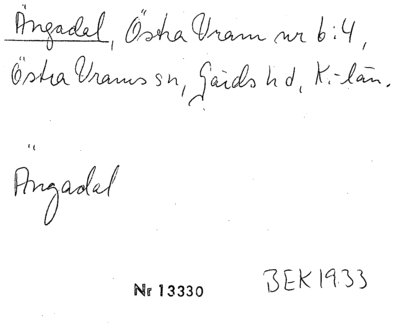 Ängadal, Östra Vram nr 6:4,
Östra Vrams sn, Gärds hd, K.-län.
Ängadal
Nr 13330 BEK 1933